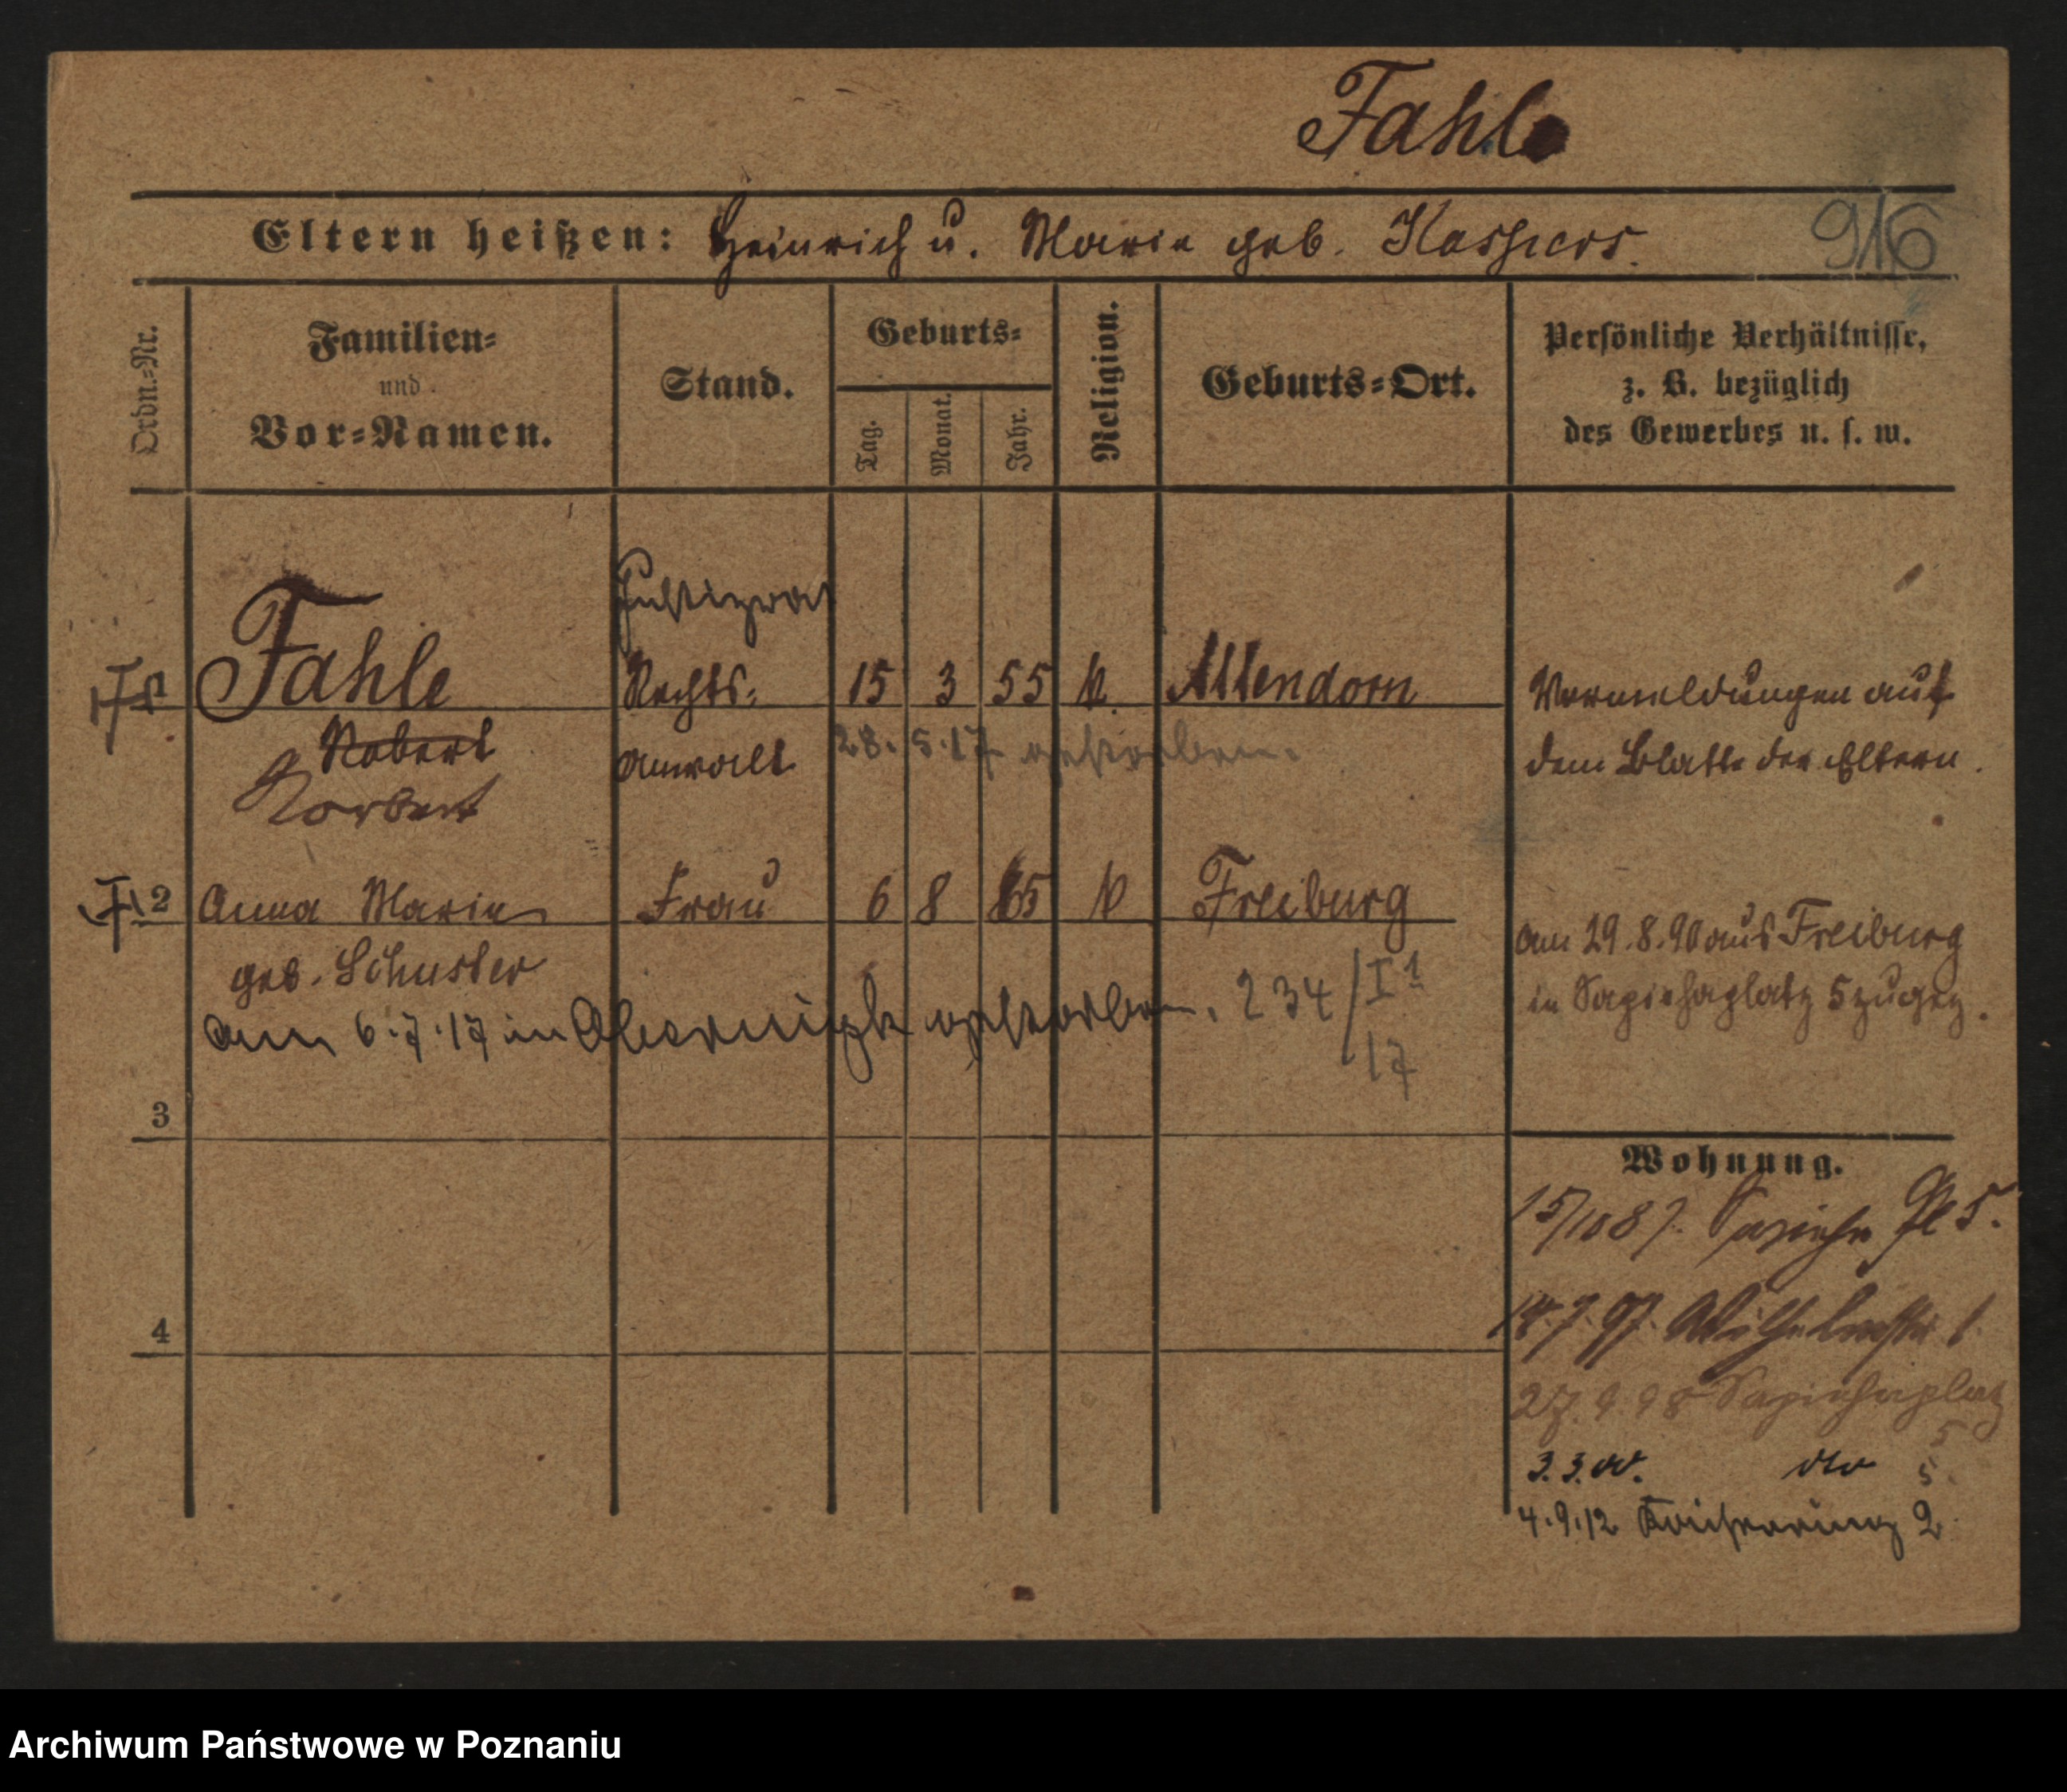 Fahle
Eltern heißen: Heinrich u. Maria geb. Kaspers.
916
Ordn.-Nr.
Familien-
und
Vor-Namen.
Stand.
Geburts-
Tag.
Monat.
Jahr.
Religion.
Geburts-Ort.
Persönliche Verhältnisse,
z. B. bezüglich
des Gewerbes u. s. w.
Justizrat
1 Fahle Rechts- 15 3 55 k. Attendorn
Robert anwalt 28. 5. 17 gestorben.
Norbert
Vormeldungen auf
dem Blatte der Eltern.
2 Anna Maria Frau 6 8 65 k Freiburg
geb. Schuster
am 29.8.90 aus Freiburg
in Sapiehaplatz 5 zugez.
am 6.7.17 in Obernigk gestorben. 234/I
17
3
4
Wohnung.
15/10 87. Sapieha Pl 5.
14.7.97. Wilhelmstr. 1
27.9.98 Sapiehaplatz
5
3.3.00. dto 5.
4.9.12 Kaiserring 2
Archiwum Państwowe w Poznaniu